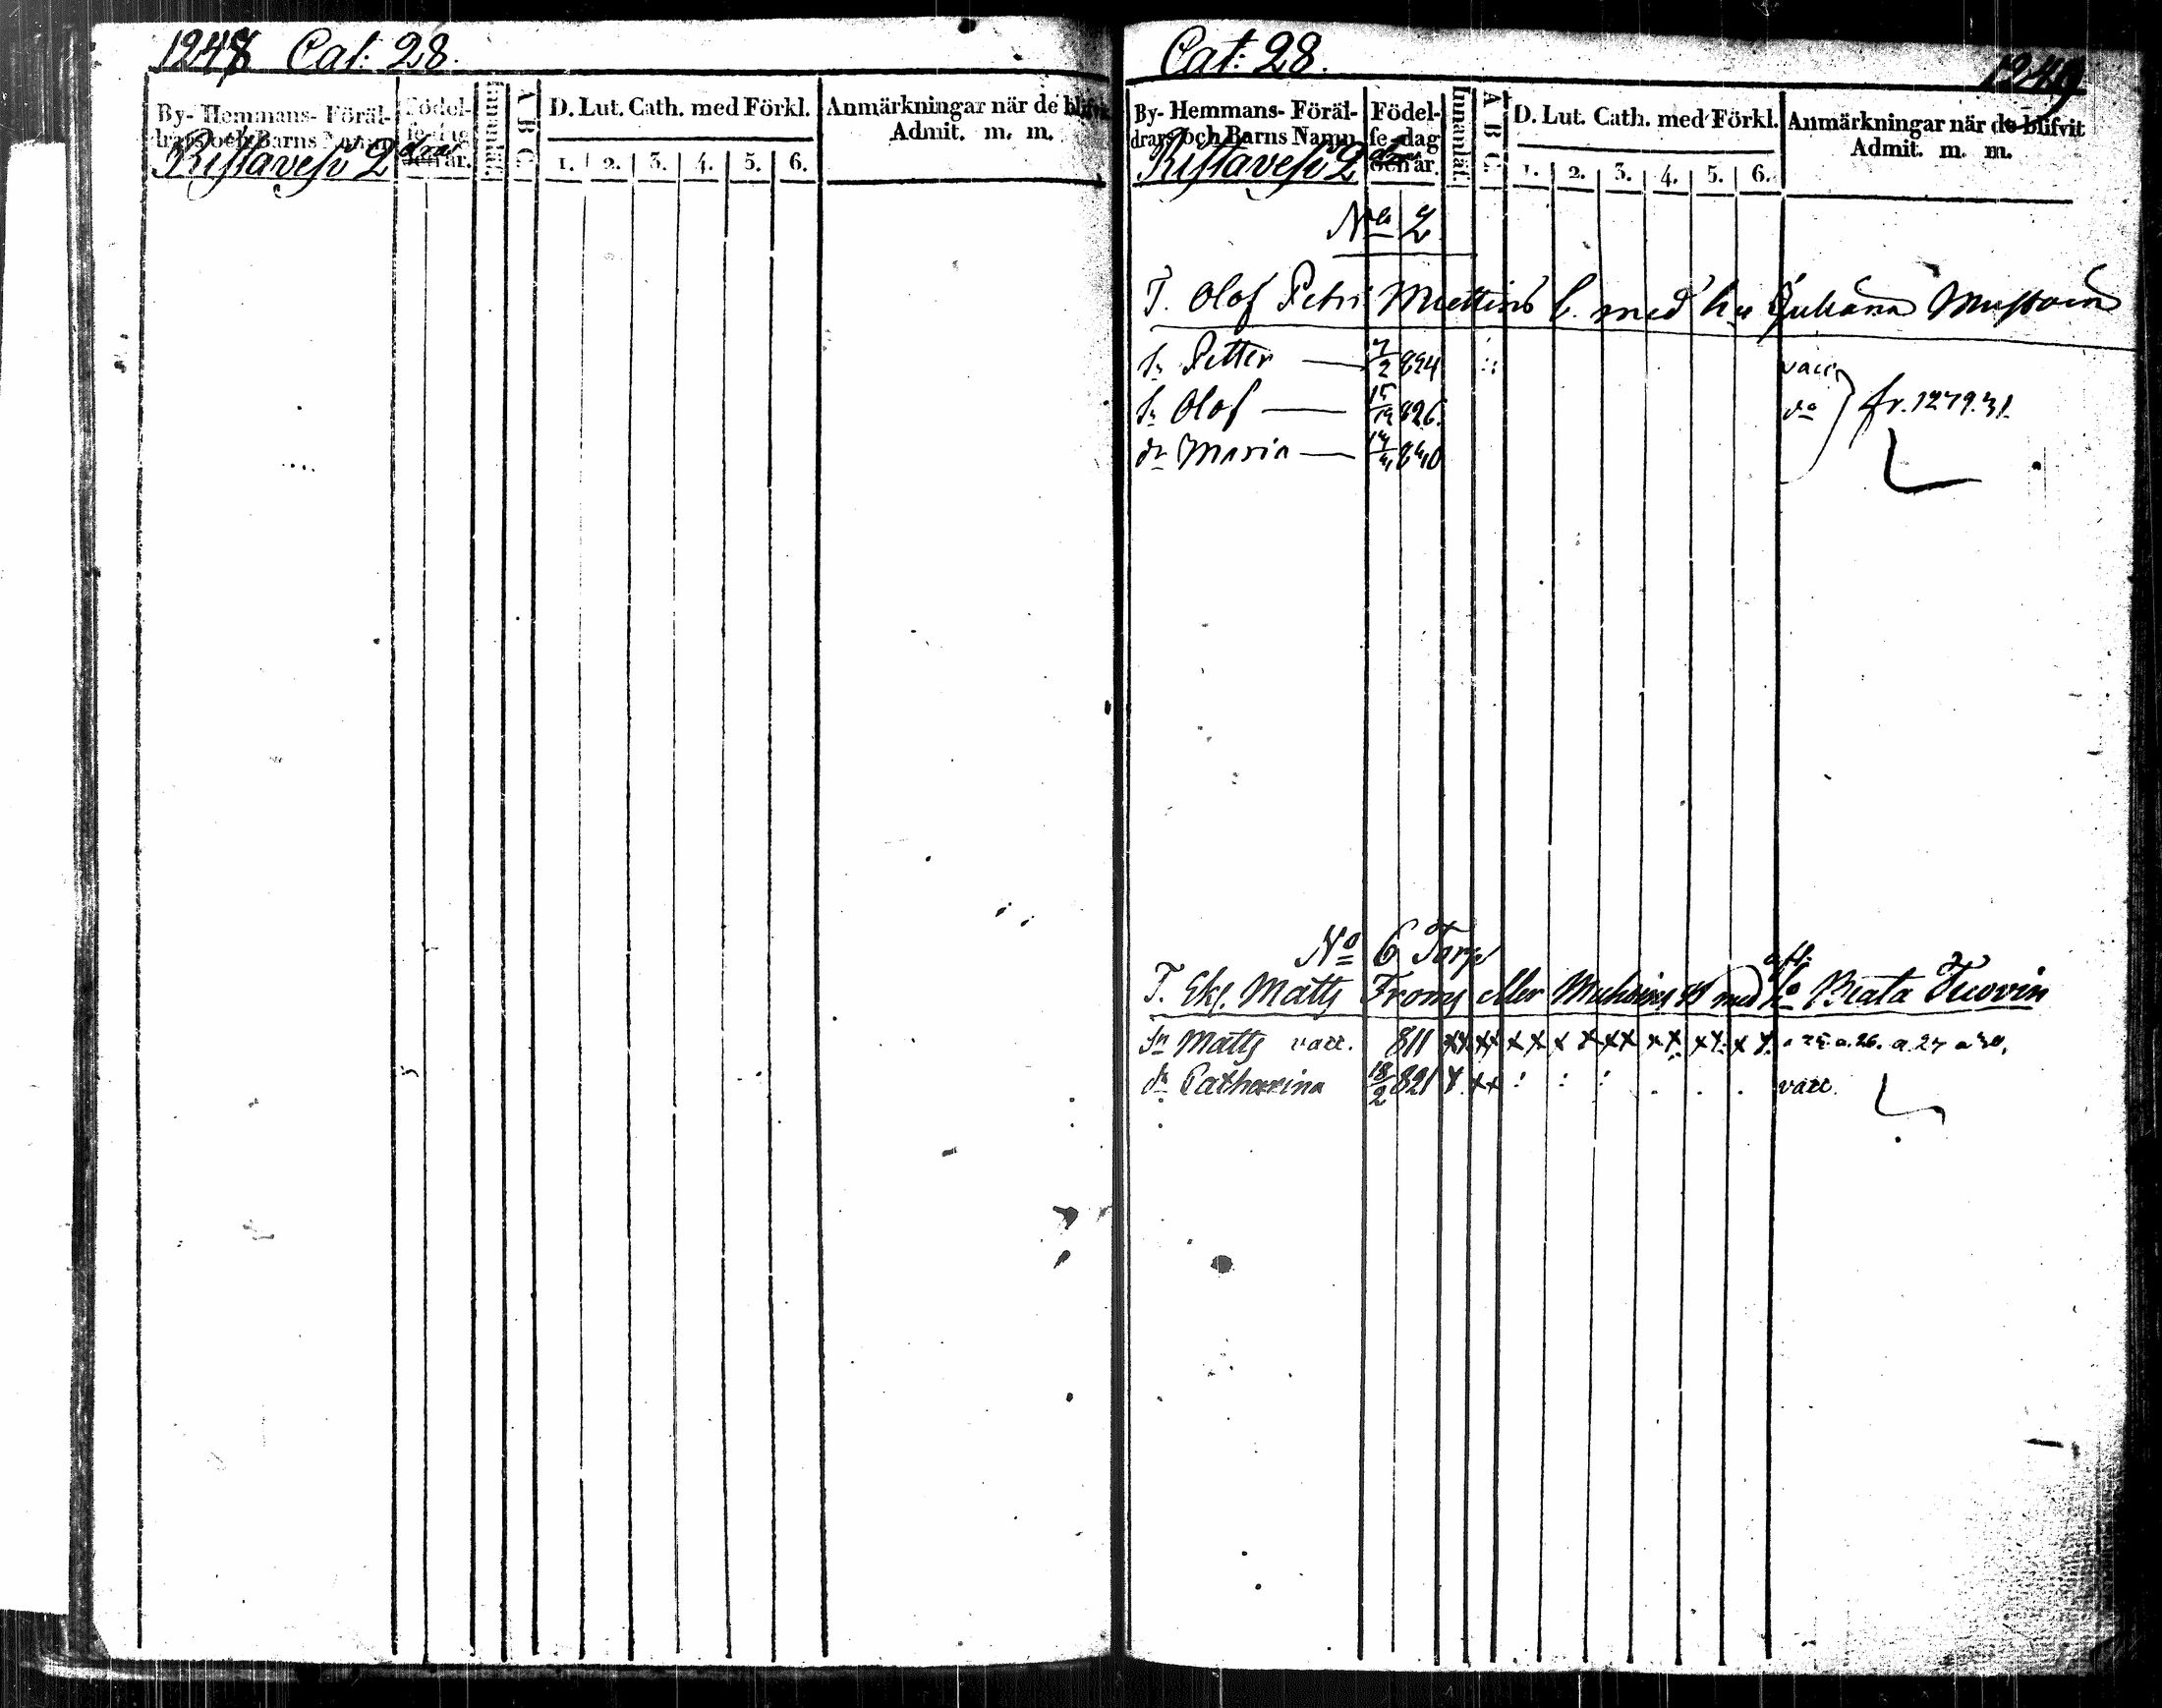 1247 Cat: 28.
By- Hemmans- Föräl-
drars och Barns Namn
Födel-
se-dag
och år.
Innanläs.
A B C.
D. Lut. Cath. med Förkl.
1. 2. 3. 4. 5. 6.
Anmärkningar när de blifvit
Admit. m. m.
Ristavesi 2
Cat: 28.
1249
By- Hemmans- Föräl-
drars och Barns Namn
Födel-
se-dag
och år.
Innanläs.
A B C.
D. Lut. Cath. med Förkl.
1. 2. 3. 4. 5. 6.
Anmärkningar när de blifvit
Admit. m. m.
Ristavesi 2
No 2
T. Olof Petri Miettins med hu Muston
sn Petter — 7/2 824 vacc.
sn Olof — 15/12 826. do fr. 1279. 41.
dr Maria — 840
No 6 Torp
T. Matts Froms eller med ho Beata Tuovin
sn Matts vacc. 811 xx xx x x x x xx x x x x x x a. 26. a. 27
dr Catharina 18/2 821 x xx vacc.